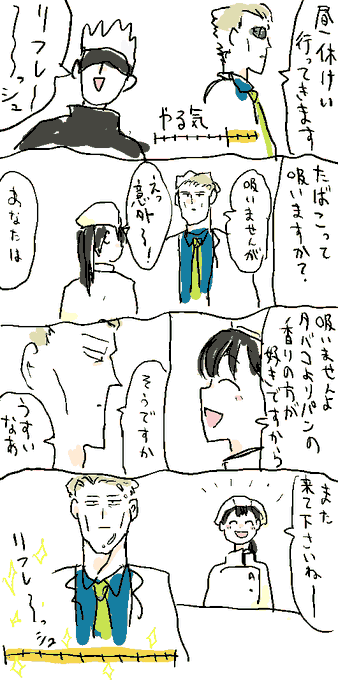 昼休けい
行ってきます
リフレ〜〜ッシュ
やる気
たばこって
吸いますか?
吸いませんが
えっ
意外〜!
あなたは
吸いませんよ
タバコよりパンの
香りの方が
好きですから
そうですか
うすい
なあ
また
来て下さいねー
リフレ〜〜ッシュ